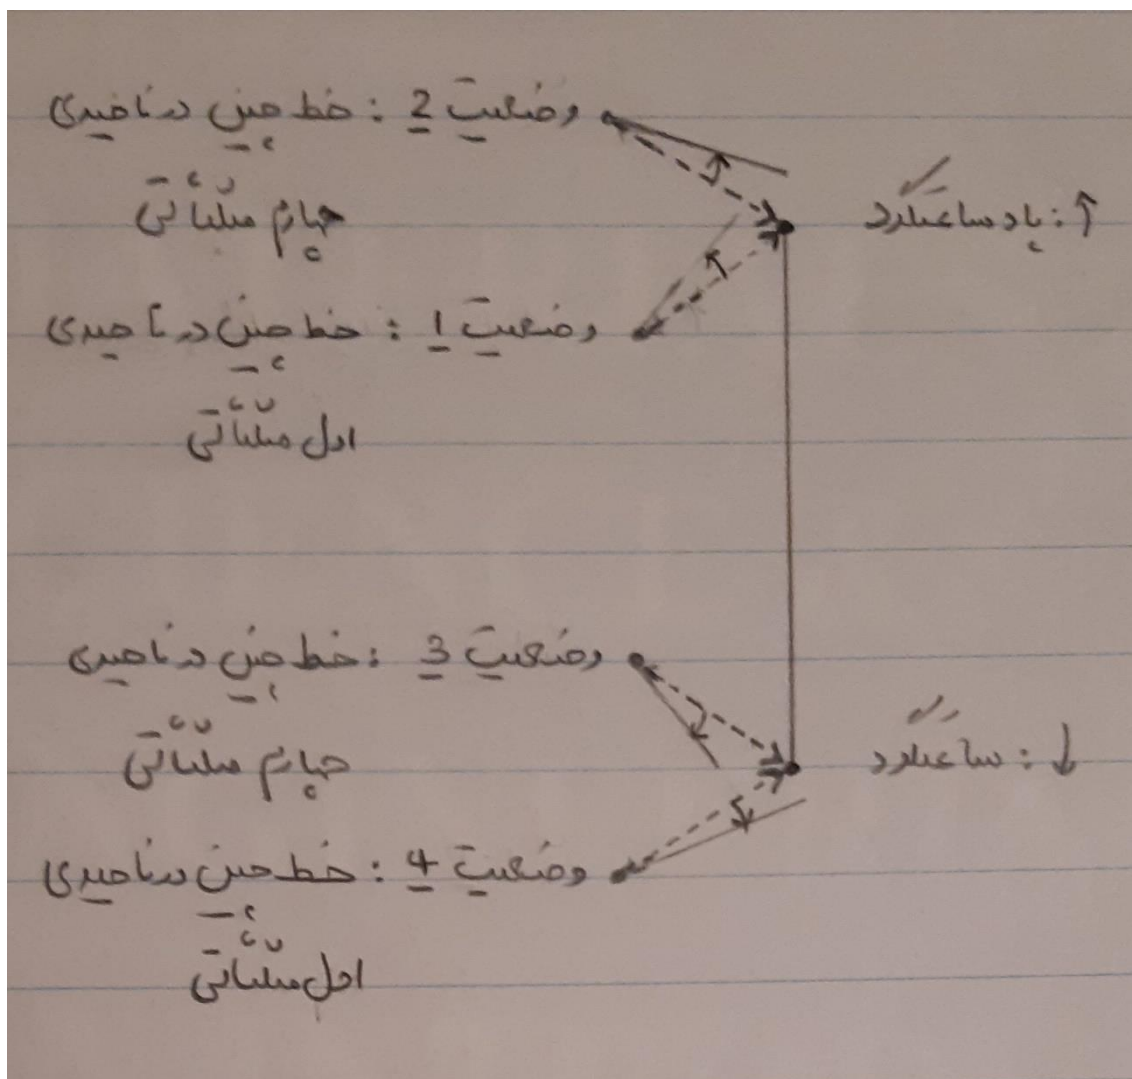 وضعیت 2 : خط چین در ناحیه‌ی
چهارم مثلثاتی
↑ : پادساعتگرد
وضعیت 1 : خط چین در ناحیه‌ی
اول مثلثاتی
وضعیت 3 : خط چین در ناحیه‌ی
چهارم مثلثاتی
↓ : ساعتگرد
وضعیت 4 : خط چین در ناحیه‌ی
اول مثلثاتی